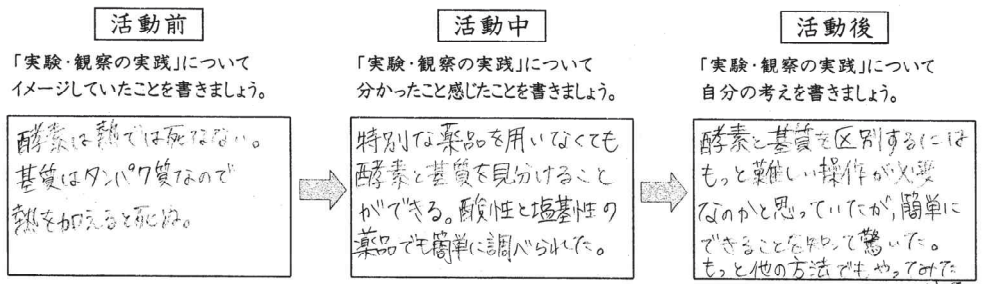 活動前
「実験・観察の実践」について
イメージしていたことを書きましょう。
酵素は熱では死なない。
基質はタンパク質なので
熱を加えると死ぬ。
活動中
「実験・観察の実践」について
分かったこと感じたことを書きましょう。
特別な薬品を用いなくても
酵素と基質を見分けること
ができる。酸性と塩基性の
薬品でも簡単に調べられた。
活動後
「実験・観察の実践」について
自分の考えを書きましょう。
酵素と基質を区別するには
もっと難しい操作が必要
なのかと思っていたが、簡単に
できることを知って驚いた。
もっと他の方法でもやってみた